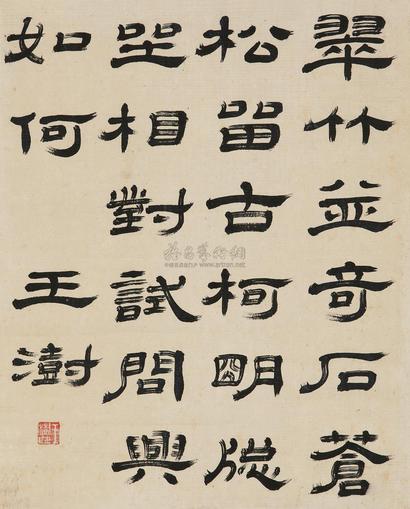 翠竹並奇石蒼
松留古柯明牕
坐相對試問興
如何 王澍